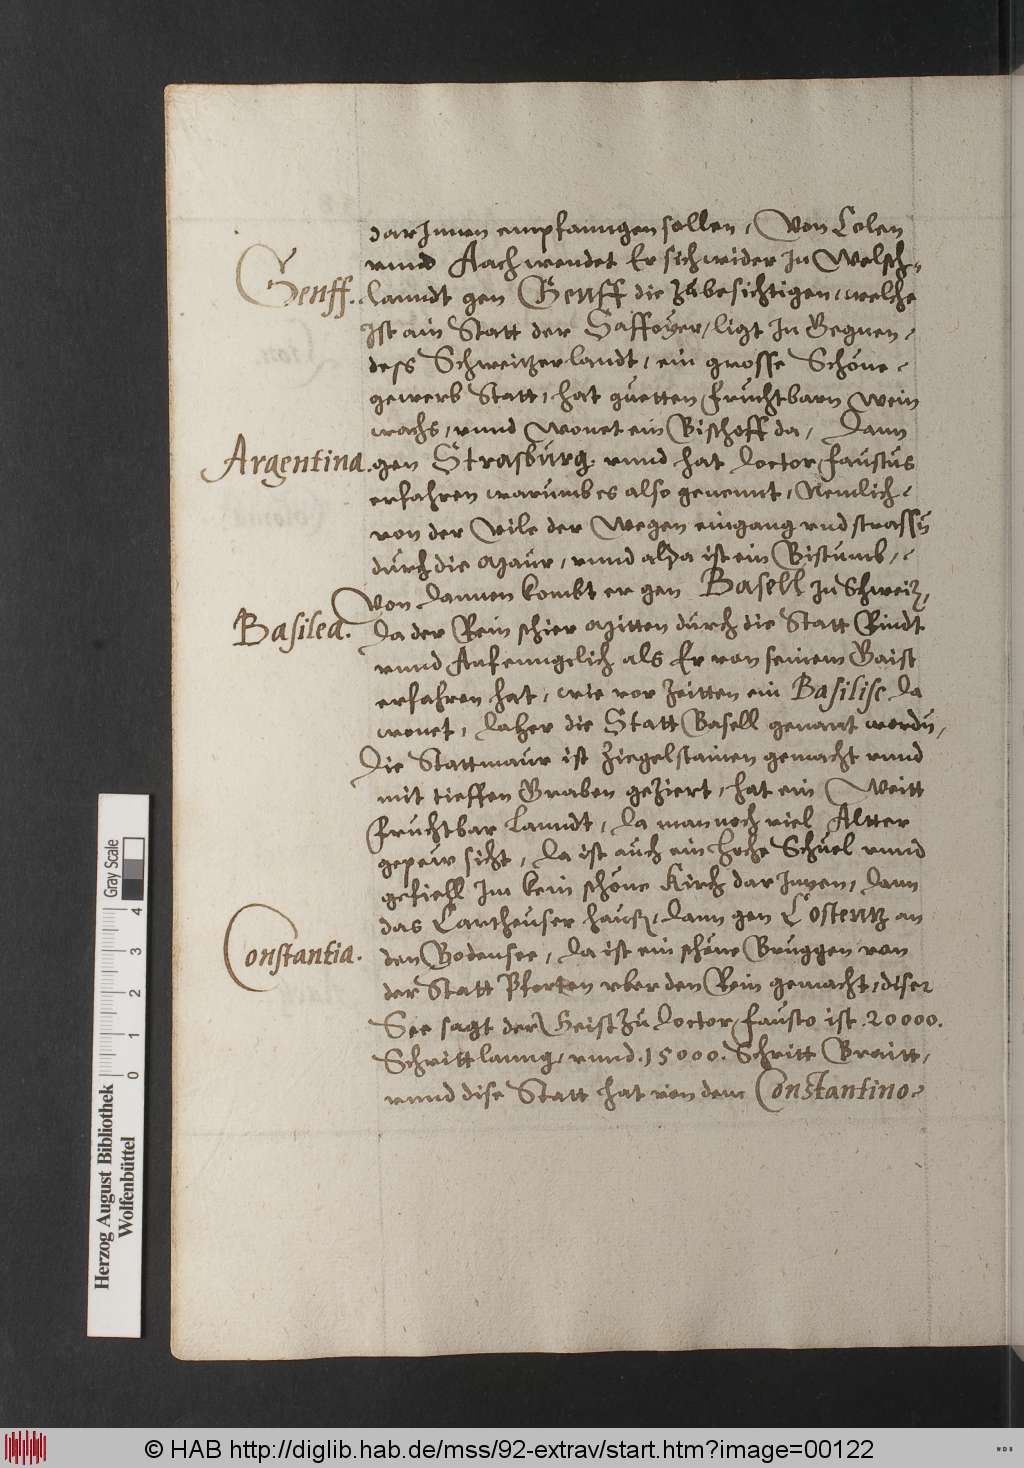 darInnen empfanngen sollen, Von Cölen
vnnd Aach wendet Er sich wider In Welsch-
Genff.
lanndt gen Genff die zu besichtigen, welche
Ist ain Statt der Saffoyer, ligt In Gegnen,
dess Schweitzerlandt, ein grosse Schöne,
gewerb Statt, hat guetten fruchtbarn Wein
wachs, vnnd wonet ein Bischoff da, Dann
Argentina.
gen Strasburg. vnnd hat doctor Faustus
erfahren warumb es also genennt, Nemlich,
von der Vile der Wegen eingang vnd strassn
durch die Maur, vnnd alda ist ein Bistumb,
Von dannen kombt er gen Basell In Schweitz,
Basilea.
da der Rein schier Mitten durch die Statt Rindt
vnnd Anfenngelich als Er von seinem Gaist
erfahren hat, wie vor Zeitten ein Basilisc da
wonet, daher die Statt Basell genant wordn,
Die Stattmaur ist Ziegelstainen gemacht vnnd
mit tieffen Graben geziert, hat ein Weitt
Fruchtbar Lanndt, da man noch viel Altter
gepeur sicht, da ist auch ein hoche Schuel vnnd
gefiell Im kein schöne Kirch darInnen, dann
das Cartheuser hauß, dann gen Costentz an
Constantia.
den Bodensee, da ist ein schöne Bruggen von
der Statt Pforten vber den Rein gemacht, diser
See sagt der Geist zu Doctor Fausto ist .20000.
Schritt lanng, vnnd .15000. Schritt Braitt,
vnnd dise Statt hat von dem Constantino,
Herzog August Bibliothek
Wolfenbüttel
Gray Scale
0 1 2 3 4
© HAB http://diglib.hab.de/mss/92-extrav/start.htm?image=00122
WDB